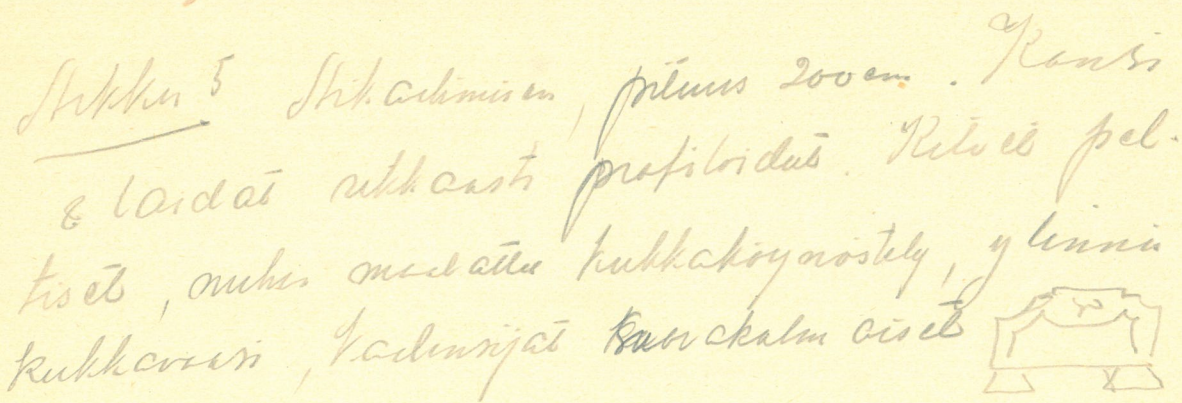 Arkku 5 Arkadimisen, pituus 200 cm. Kansi
& laidat rikkaasti profiloidut. Kilvet pel-
tiset, niihin maalattu kukkaköynnöstely, ylinnä
kukkavaasi, kädensijat suorakulmaiset